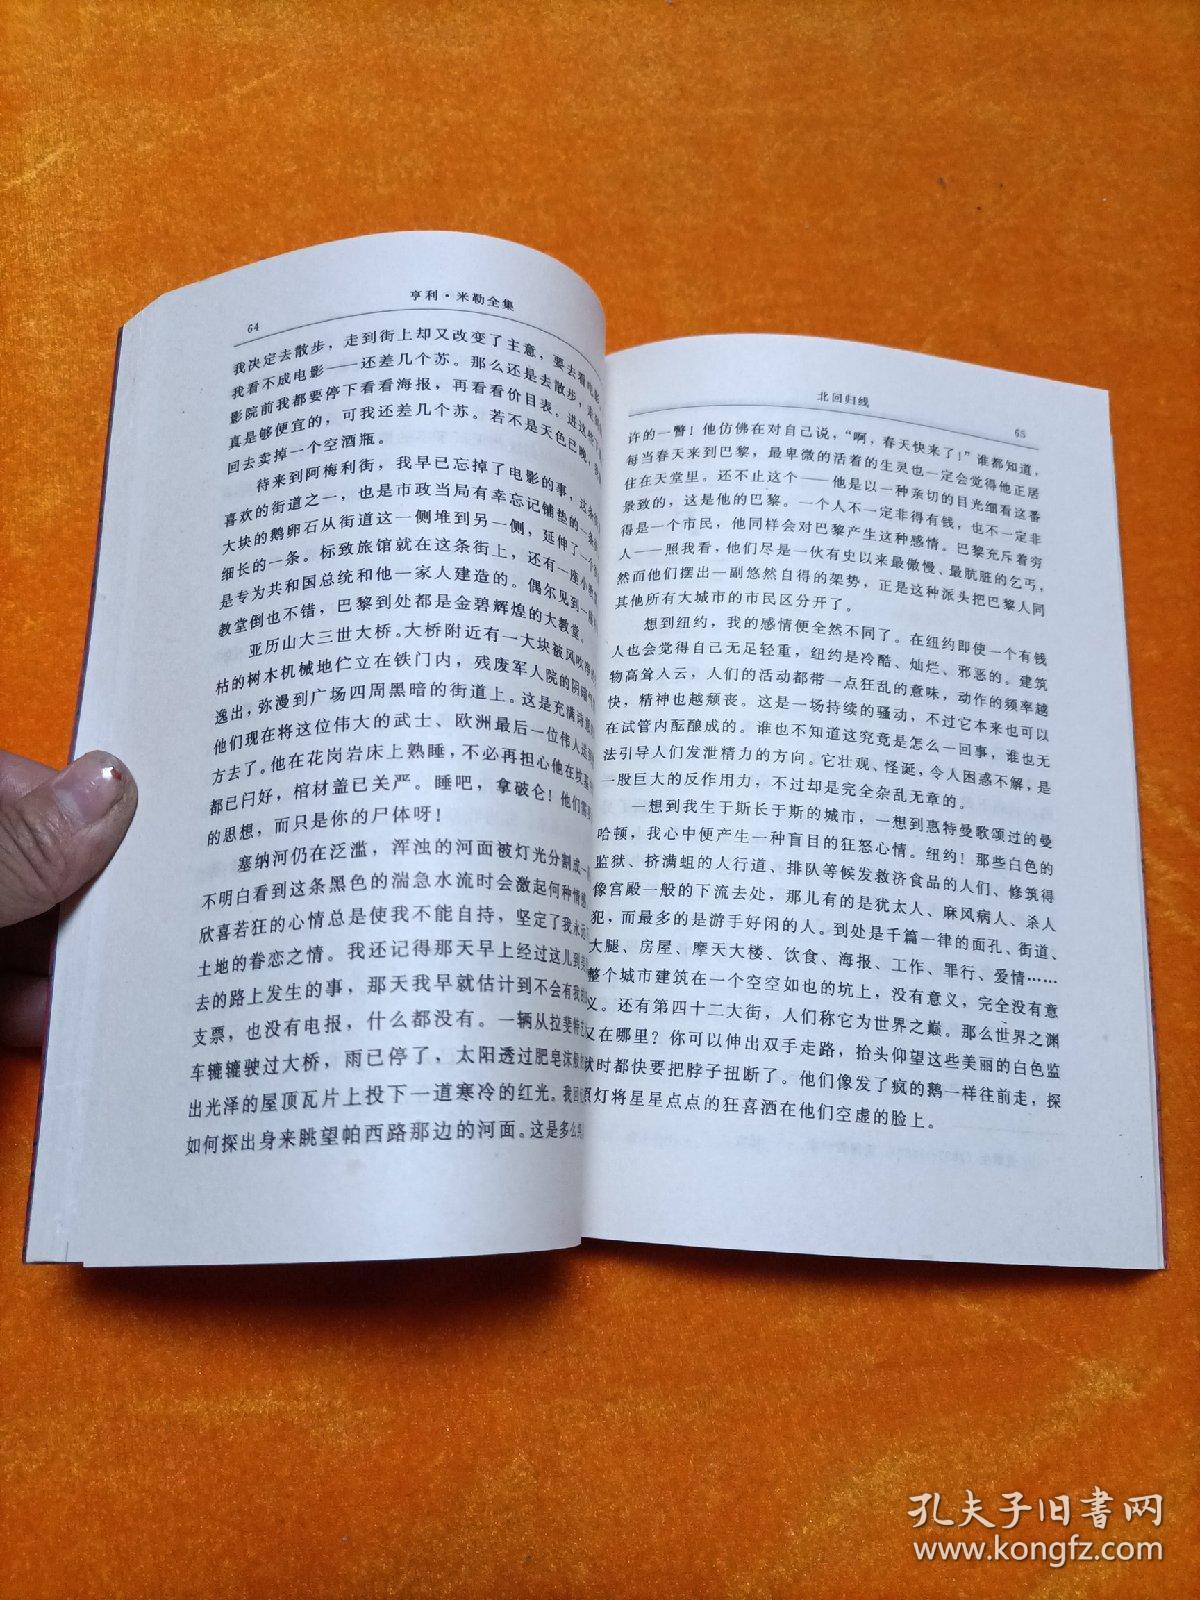 64
亨利·米勒全集
我决定去散步，走到街上却又改变了主意，要去看电影
我看不成电影——还差几个苏。那么还是去散步，走
影院前我都要停下看看海报，再看看价目表。进这些
真是够便宜的，可我还差几个苏。若不是天色已晚，
回去卖掉一个空酒瓶。
待来到阿梅利街，我早已忘掉了电影的事，这条
喜欢的街道之一，也是市政当局有幸忘记铺垫的一条
大块的鹅卵石从街道这一侧堆到另一侧，延伸了一个
细长的一条。标致旅馆就在这条街上，还有一座小
是专为共和国总统和他一家人建造的。偶尔见到一
教堂倒也不错，巴黎到处都是金碧辉煌的大教堂。
亚历山大三世大桥。大桥附近有一大块被风吹
枯的树木机械地伫立在铁门内，残废军人院的阴暗
逸出，弥漫到广场四周黑暗的街道上。这是充满诗意
他们现在将这位伟大的武士、欧洲最后一位伟人
方去了。他在花岗岩床上熟睡，不必再担心他在坟墓
都已闩好，棺材盖已关严。睡吧，拿破仑！他们需要
的思想，而只是你的尸体呀！
塞纳河仍在泛滥，浑浊的河面被灯光分割成一
不明白看到这条黑色的湍急水流时会激起何种情
欣喜若狂的心情总是使我不能自持，坚定了我永远
土地的眷恋之情。我还记得那天早上经过这儿到
去的路上发生的事，那天我早就估计到不会有我
支票，也没有电报，什么都没有。一辆从拉斐特
车辘辘驶过大桥，雨已停了，太阳透过肥皂沫般
出光泽的屋顶瓦片上投下一道寒冷的红光。我回
如何探出身来眺望帕西路那边的河面。这是多么
北回归线
65
许的一瞥！他仿佛在对自己说，“啊，春天快来了！”谁都知道，
每当春天来到巴黎，最卑微的活着的生灵也一定会觉得他正居
住在天堂里。还不止这个——他是以一种亲切的目光细看这番
景致的，这是他的巴黎。一个人不一定非得有钱，也不一定非
得是一个市民，他同样会对巴黎产生这种感情。巴黎充斥着穷
人——照我看，他们尽是一伙有史以来最傲慢、最肮脏的乞丐，
然而他们摆出一副悠然自得的架势，正是这种派头把巴黎人同
其他所有大城市的市民区分开了。
想到纽约，我的感情便全然不同了。在纽约即使一个有钱
人也会觉得自己无足轻重，纽约是冷酷、灿烂、邪恶的。建筑
物高耸入云，人们的活动都带一点狂乱的意味，动作的频率越
快，精神也越颓丧。这是一场持续的骚动，不过它本来也可以
在试管内酝酿成的。谁也不知道这究竟是怎么一回事，谁也无
法引导人们发泄精力的方向。它壮观、怪诞，令人困惑不解，是
一股巨大的反作用力，不过却是完全杂乱无章的。
一想到我生于斯长于斯的城市，一想到惠特曼歌颂过的曼
哈顿，我心中便产生一种盲目的狂怒心情。纽约！那些白色的
监狱、挤满蛆的人行道、排队等候发救济食品的人们、修筑得
像宫殿一般的下流去处，那儿有的是犹太人、麻风病人、杀人
犯，而最多的是游手好闲的人。到处是千篇一律的面孔、街道、
大腿、房屋、摩天大楼、饮食、海报、工作、罪行、爱情……
整个城市建筑在一个空空如也的坑上，没有意义，完全没有意
义。还有第四十二大街，人们称它为世界之巅。那么世界之渊
又在哪里？你可以伸出双手走路，抬头仰望这些美丽的白色监
狱时都快要把脖子扭断了。他们像发了疯的鹅一样往前走，探
照灯将星星点点的狂喜洒在他们空虚的脸上。
孔夫子旧书网
www.kongfz.com